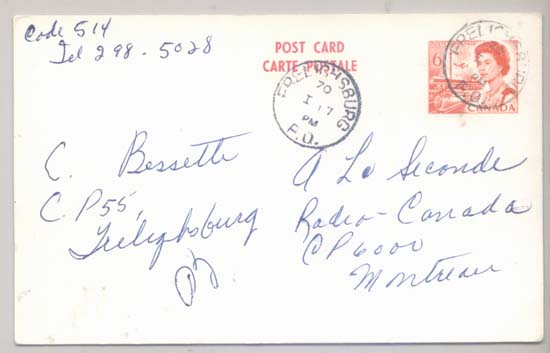 Code 514
Tel 298-5028
POST CARD
CARTE POSTALE
FRELIGHSBURG
70
I 17
PM
P.Q.
6
CANADA
FRELIGHSBURG
P.Q.
C. Bessette
C.P 55,
Frelighsburg
PQ
A La Seconde
Radio-Canada
CP 6000
Montreal